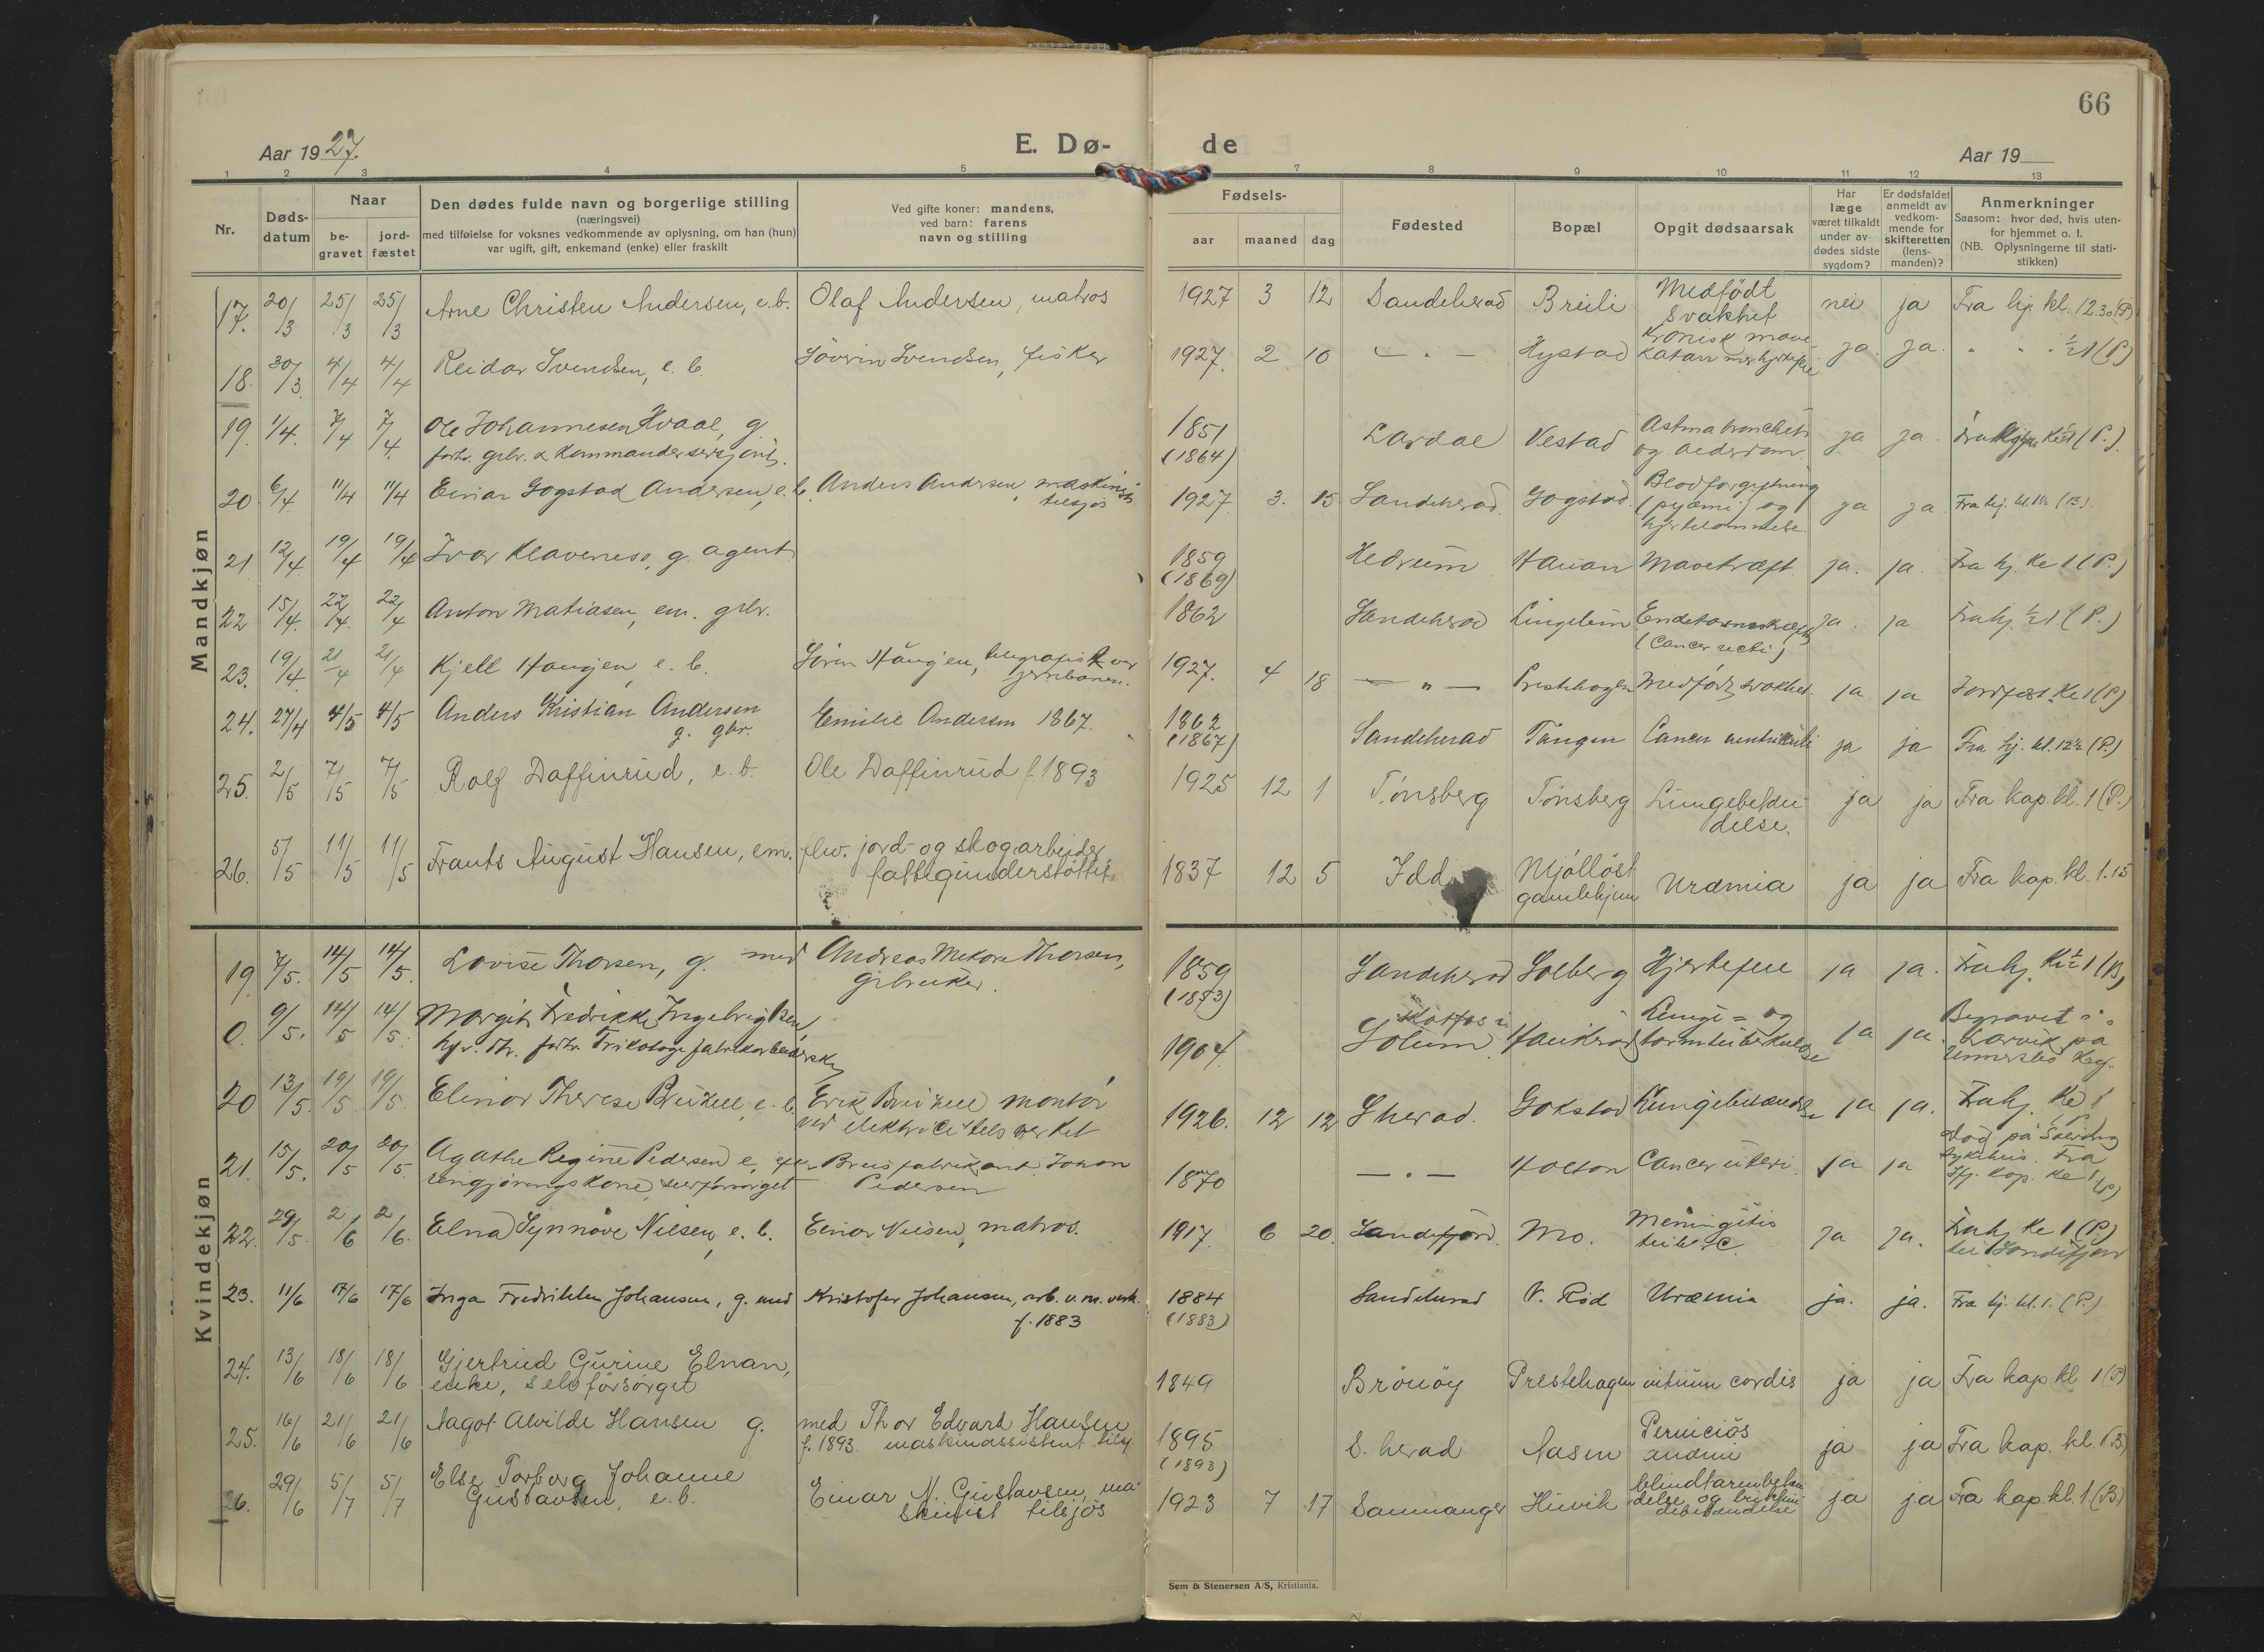 66
Aar 1927.
E. Dø-
de
Aar 19
1 2 3 4 5 7 8 9 10 11 12 13
Nr.
Døds-
datum
Naar
be-
gravet
jord-
fæstet
Den dødes fulde navn og borgerlige stilling
(næringsvei)
med tilføielse for voksnes vedkommende av oplysning, om han (hun)
var ugift, gift, enkemand (enke) eller fraskilt
Ved gifte koner: mandens,
ved barn: farens
navn og stilling
Fødsels-
aar maaned dag
Fødested
Bopæl
Opgit dødsaarsak
Har
læge
været tilkaldt
under av-
dødes sidste
sygdom?
Er dødsfaldet
anmeldt av
vedkom-
mende for
skifteretten
(lens-
manden)?
Anmerkninger
Saasom: hvor død, hvis uten-
for hjemmet o. l.
(NB. Oplysningerne til stati-
stikken)
Mandkjøn
17. 20/3 25/3 25/3 Arne Christen Andersen, e.b. Olaf Andersen, matros 1927 3 12 Sandeherad Breili Medfödt
svakhet nei ja Fra hj. kl. 12.30 (P)
18. 30/3 4/4 4/4 Reidar Svendsen, e. b. Sövrin Svendsen, fisker 1927. 2 10 — " — Hystad Kronisk mave-
katarr ja. ja. " " ½1 (P)
19. 1/4. 7/4 7/4. Ole Johannesen Hvaal, g.
forhv. grbr. & Kommandersersjant. 1851
(1864) Lardal Vestad Astma
og ja ja. (P.)
20. 6/4 11/4 11/4 Einar Gogstad Andersen, e. b. Anders Andersen, maskinist
tilsjøs 1927. 3. 15. Sandeherad. Gogstad. Blodforgiftning
(pyæmi) og
hjertelammelse. ja ja Fra hj. kl. (B).
21 12/4 19/4 19/4 Ivar Klaveness, g. agent 1859
(1869) Hedrum Hauan Mavekræft. ja. ja. Fra hj. kl 1 (P.)
22 15/4. 22/4. 22/4 Anton Matiasen, em. grbr. 1862 Sandeherad Lingelem Endetarmskræft
(Cancer recti) ja. ja Fra hj. ½1 (P.)
23. 19/4. 21/4 21/4 Kjell Haugen, e. b. Sören Haugen, telegrafist ver
jernbanen. 1927. 4 18 — " — Prestehagen Medfödt svakhet. ja ja Jordfæst. kl 1 (P)
24. 27/4 4/5 4/5 Anders Kristian Andersen
g. gbr. Emilie Andersen 1867. 1862
(1867) Sandeherad Tangen Cancer ventriculi ja ja Fra hj. kl. 12½ (P.)
25. 2/5 7/5 7/5 Rolf Daffinrud, e. b. Ole Daffinrud f. 1893 1925 12 1 Tönsberg Tönsberg Lungebeten-
delse. ja ja Fra kap. kl. 1 (P.)
26. 5/5 11/5 11/5 Frants August Hansen, em. fhv. jord- og skogarbeider
fattigunderstöttet. 1837 12 5 Idd Mjöllöst
gamlehjem Uræmia ja ja Fra kap. kl. 1.15
Kvindekjøn
19. 7/5. 14/5 14/5. Lovise Thorsen, g. med Andreas Thorsen,
grbruker. 1859
(1853) Sandeherad Solberg Hjertefeil ja ja. Fra hj. kl ½1 (B)
0. 9/5. 14/5 14/5. Margit Fredrikke Ingebrigtsen,
forhv. Trikotagefabrikarbeiderske 1904. Skotfos i
Solum. Haukerød Lunge- og
tarmtuberkulose ja ja. Begravet i
Larvik på
Undersbo Kbg.
20 13/5. 19/5 19/5. Elinor Therese e. b. Erik montör
ved elektricitetsverket 1926. 12 12 Sherad. Gokstad Lungebetændelse ja ja. Fra hj. kl 1
(P)
21. 15/5. 20/5 20/5. Agathe Regine Pedersen e, efter Brusfabrikant Johan
Pedersen
rengjøringskone, selvforsørget 1870 — " — Holton Cancer uteri. ja ja Död på
sykehus. Fra
kap. kl 1 (P)
22. 29/5. 2/6 2/6. Elna Synnöve Nilsen, e. b. Einar Nilsen, matros. 1917. 6 20. Sandefjord. Mo. Meningitis
tuberc. ja ja. Fra hj. kl 1 (P.)
til Sandefjord
23. 11/6 17/6 17/6 Inga Fredrikke Johansen, g. med Kristofer Johansen, arb. v. m. verk.
f. 1883 1884
(1883) Sandeherad V. Rød Uræmia ja. ja. Fra hj. kl. 1. (P.)
24. 13/6 18/6 18/6 Gjertrud Gurine Elnan,
enke, selvforsörget 1849 Brönöy Prestehagen vitium cordis ja ja Fra kap kl 1 (P)
25. 16/6 21/6 21/6 Aagot Alvilde Hansen g. med Thor Edvard Hansen
f. 1893. maskinassistent tilsj. 1895
(1893) S. herad Aasen Perniciös
anæmi ja ja Fra kap. kl. 1 (B)
26. 29/6 5/7 5/7 Else Torborg Johanne
Gustavsen, e. b. Einar N. Gustavsen, ma-
skinist tilsjös 1923 7 17 Samnanger Huvik blindtarmbeten-
delse og bukhin-
debetændelse ja ja Fra kap. kl. 1. (B)
Sem & Stenersen A/S, Kristiania.